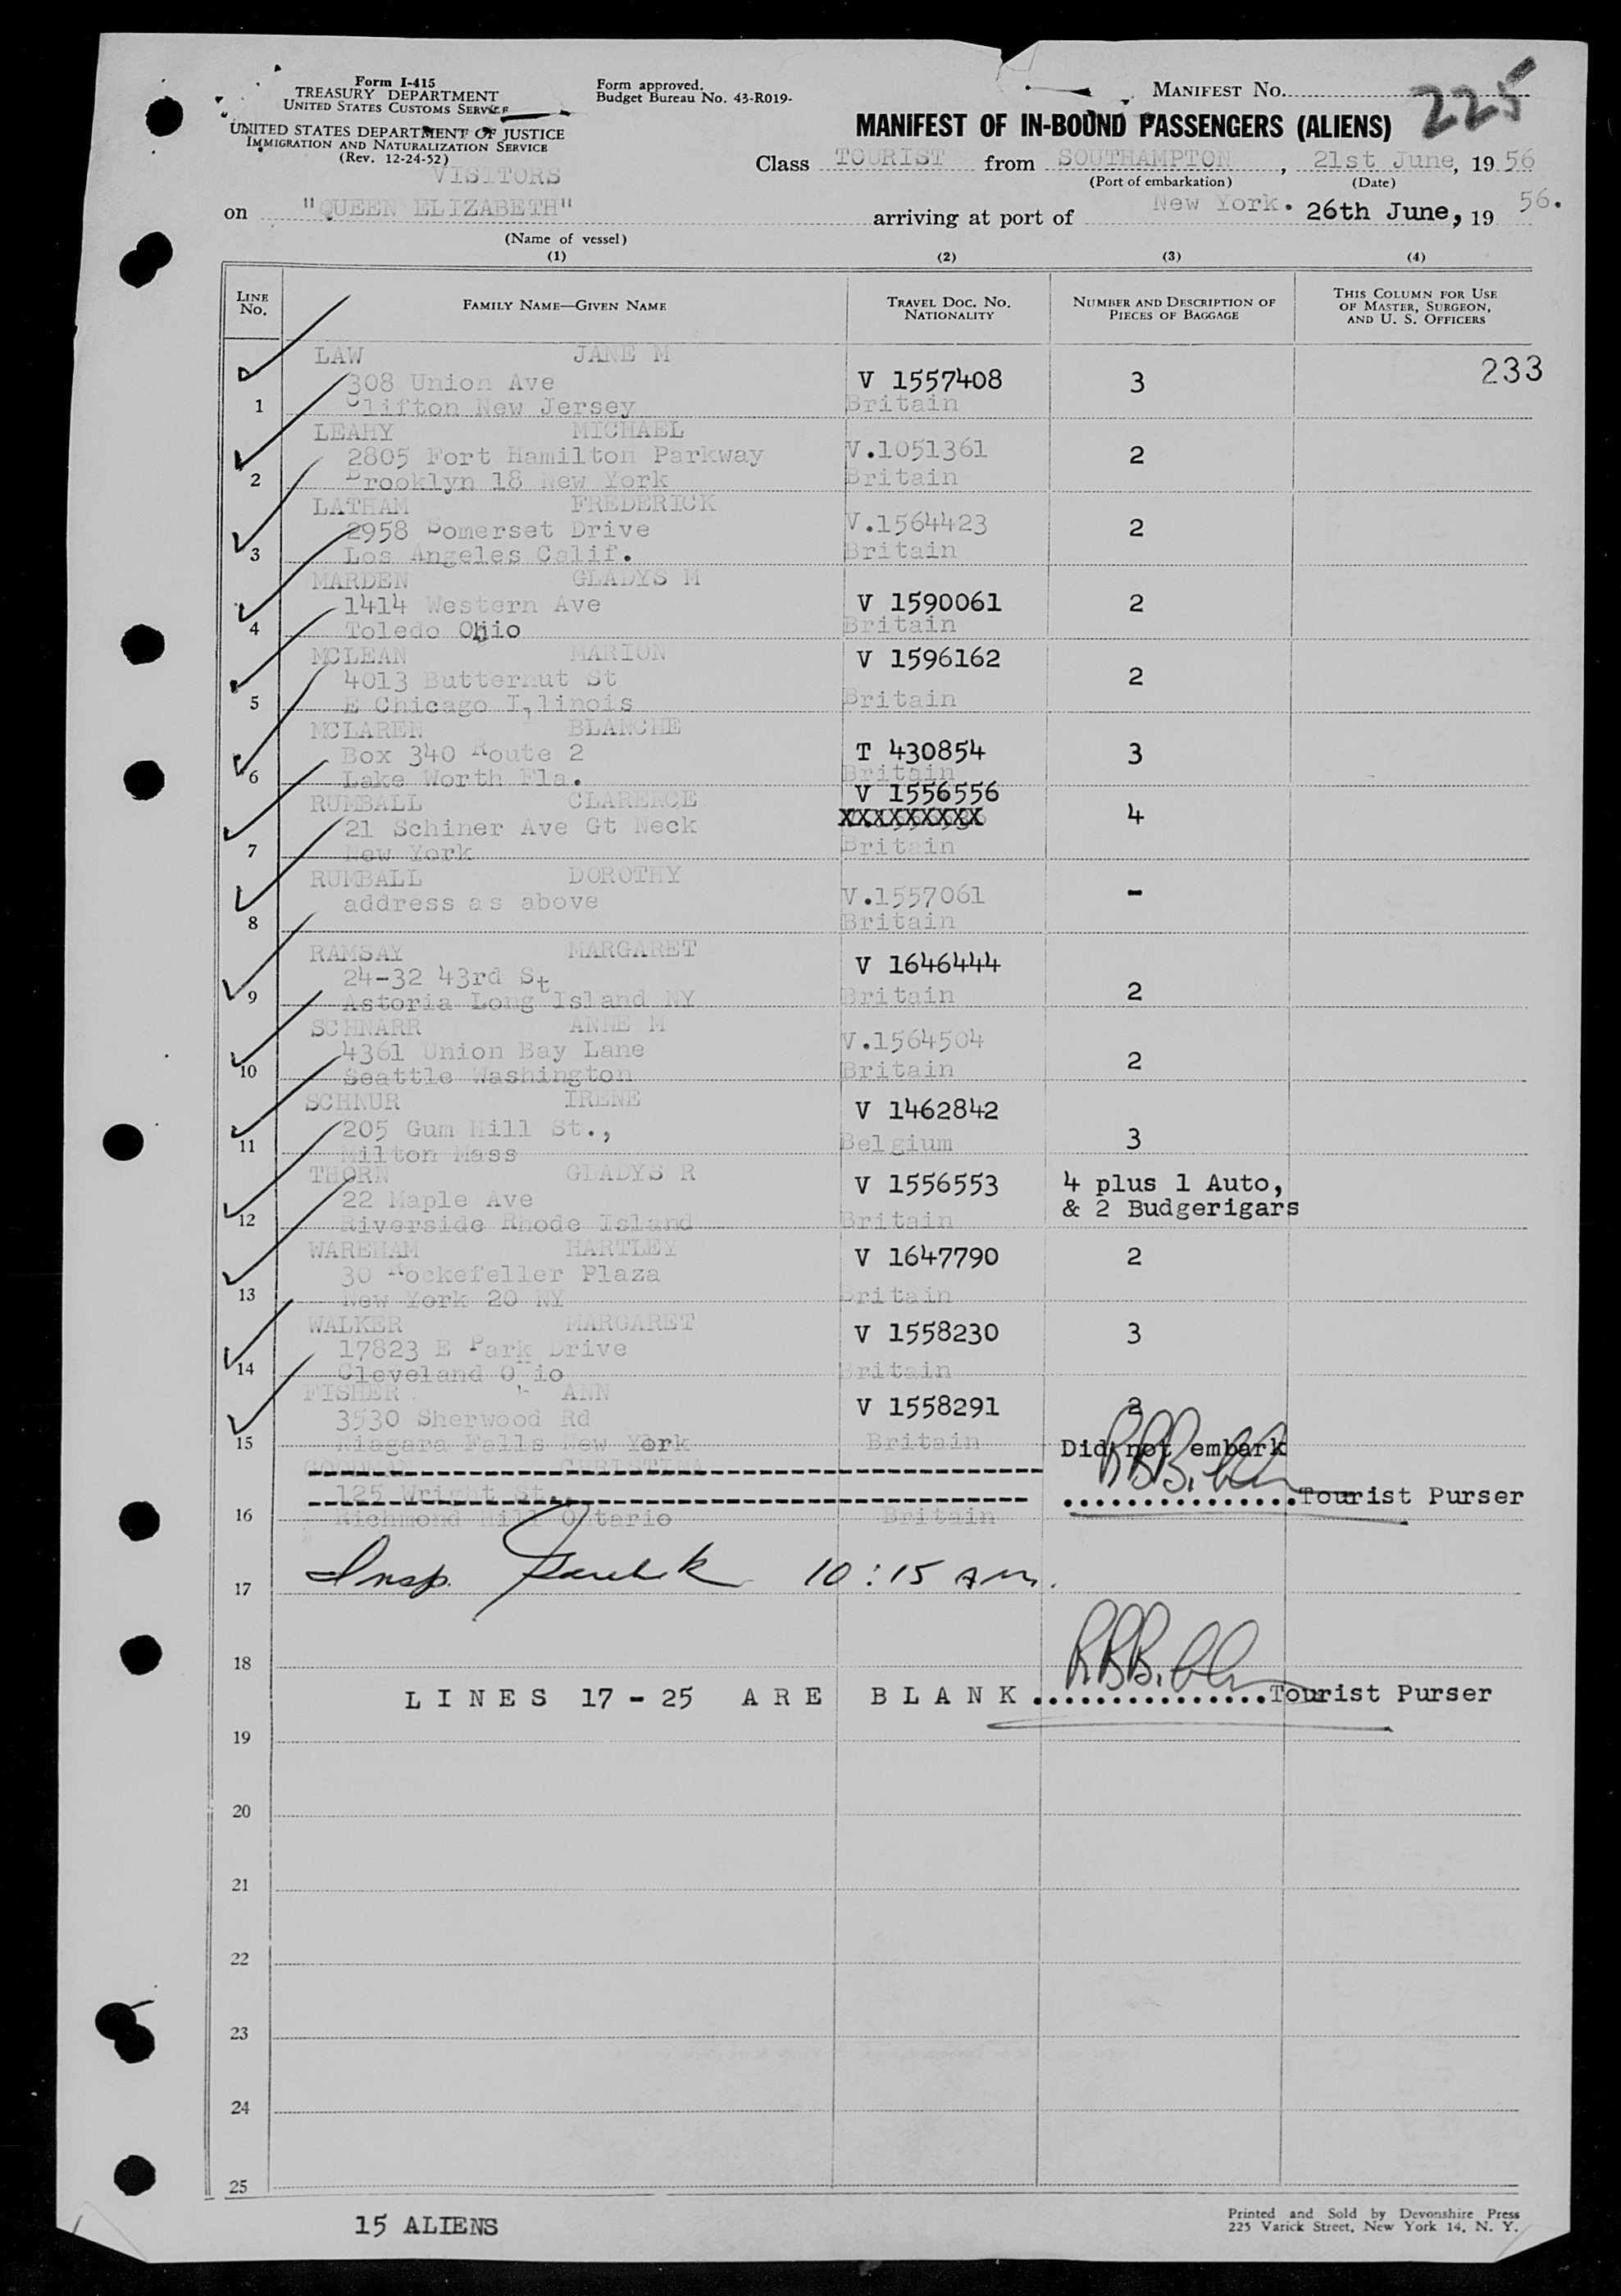 Form I-415
TREASURY DEPARTMENT
UNITED STATES CUSTOMS SERVICE
UNITED STATES DEPARTMENT OF JUSTICE
IMMIGRATION AND NATURALIZATION SERVICE
(Rev. 12-24-52)
VISITORS
Form approved.
Budget Bureau No. 43-R019-
MANIFEST No. 225
MANIFEST OF IN-BOUND PASSENGERS (ALIENS)
Class TOURIST from SOUTHAMPTON, 21st June, 19 56
(Port of embarkation) (Date)
on "QUEEN ELIZABETH" arriving at port of New York. 26th June, 19 56.
(Name of vessel)
(1) (2) (3) (4)
LINE No. FAMILY NAME—GIVEN NAME TRAVEL DOC. NO. NATIONALITY NUMBER AND DESCRIPTION OF PIECES OF BAGGAGE THIS COLUMN FOR USE OF MASTER, SURGEON, AND U. S. OFFICERS
LAW JANE M
308 Union Ave V 1557408 3 233
1 Clifton New Jersey Britain
LEAHY MICHAEL
2805 Fort Hamilton Parkway V.1051361 2
2 Brooklyn 18 New York Britain
LATHAM FREDERICK
2958 Somerset Drive V.1564423 2
3 Los Angeles Calif. Britain
MARDEN GLADYS M
1414 Western Ave V 1590061 2
4 Toledo Ohio Britain
MCLEAN MARION V 1596162
4013 Butternut St 2
5 E Chicago Illinois Britain
MCLAREN BLANCHE
Box 340 Route 2 T 430854 3
6 Lake Worth Fla. Britain
RUMBALL CLARENCE V 1556556
21 Schiner Ave Gt Neck XXXXXXXXX 4
7 New York Britain
RUMBALL DOROTHY
address as above V.1557061 -
8 Britain
RAMSAY MARGARET V 1646444
24-32 43rd St
9 Astoria Long Island NY Britain 2
SCHNARR ANNE M V.1564504
4361 Union Bay Lane
10 Seattle Washington Britain 2
SCHNUR IRENE V 1462842
205 Gum Hill St.,
11 Milton Mass Belgium 3
THORN GLADYS R V 1556553 4 plus 1 Auto,
22 Maple Ave & 2 Budgerigars
12 Riverside Rhode Island Britain
WAREHAM HARTLEY V 1647790 2
30 Rockefeller Plaza
13 New York 20 NY Britain
WALKER MARGARET V 1558230 3
17823 E Park Drive
14 Cleveland Ohio Britain
FISHER ANN V 1558291 2
3530 Sherwood Rd
15 Niagara Falls New York Britain Did not embark
GOODMAN CHRISTINA
125 Wright St., Tourist Purser
16 Richmond Hill Ontario Britain
17 Insp. 10:15 am.
18
LINES 17 - 25 ARE BLANK...............Tourist Purser
19
20
21
22
23
24
25
15 ALIENS
Printed and Sold by Devonshire Press
225 Varick Street, New York 14, N. Y.